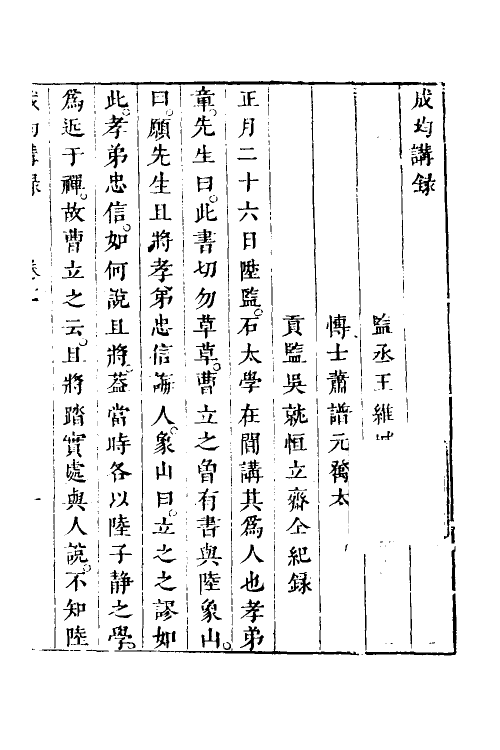 成均講錄
監丞王維
博士蕭譜元舊太
貢監吳就恒立齋仝紀錄
正月二十六日陞監石太學在間講其爲人也孝弟
章先生曰此書切勿草草曹立之曾有書與陸象山
曰願先生且將孝弟忠信誨人象山曰立之之謬如
此孝弟忠信如何說且將葢當時各以陸子静之學
爲近于禪故曹立之云且將踏實處與人說不知陸
成均講錄
卷之
一